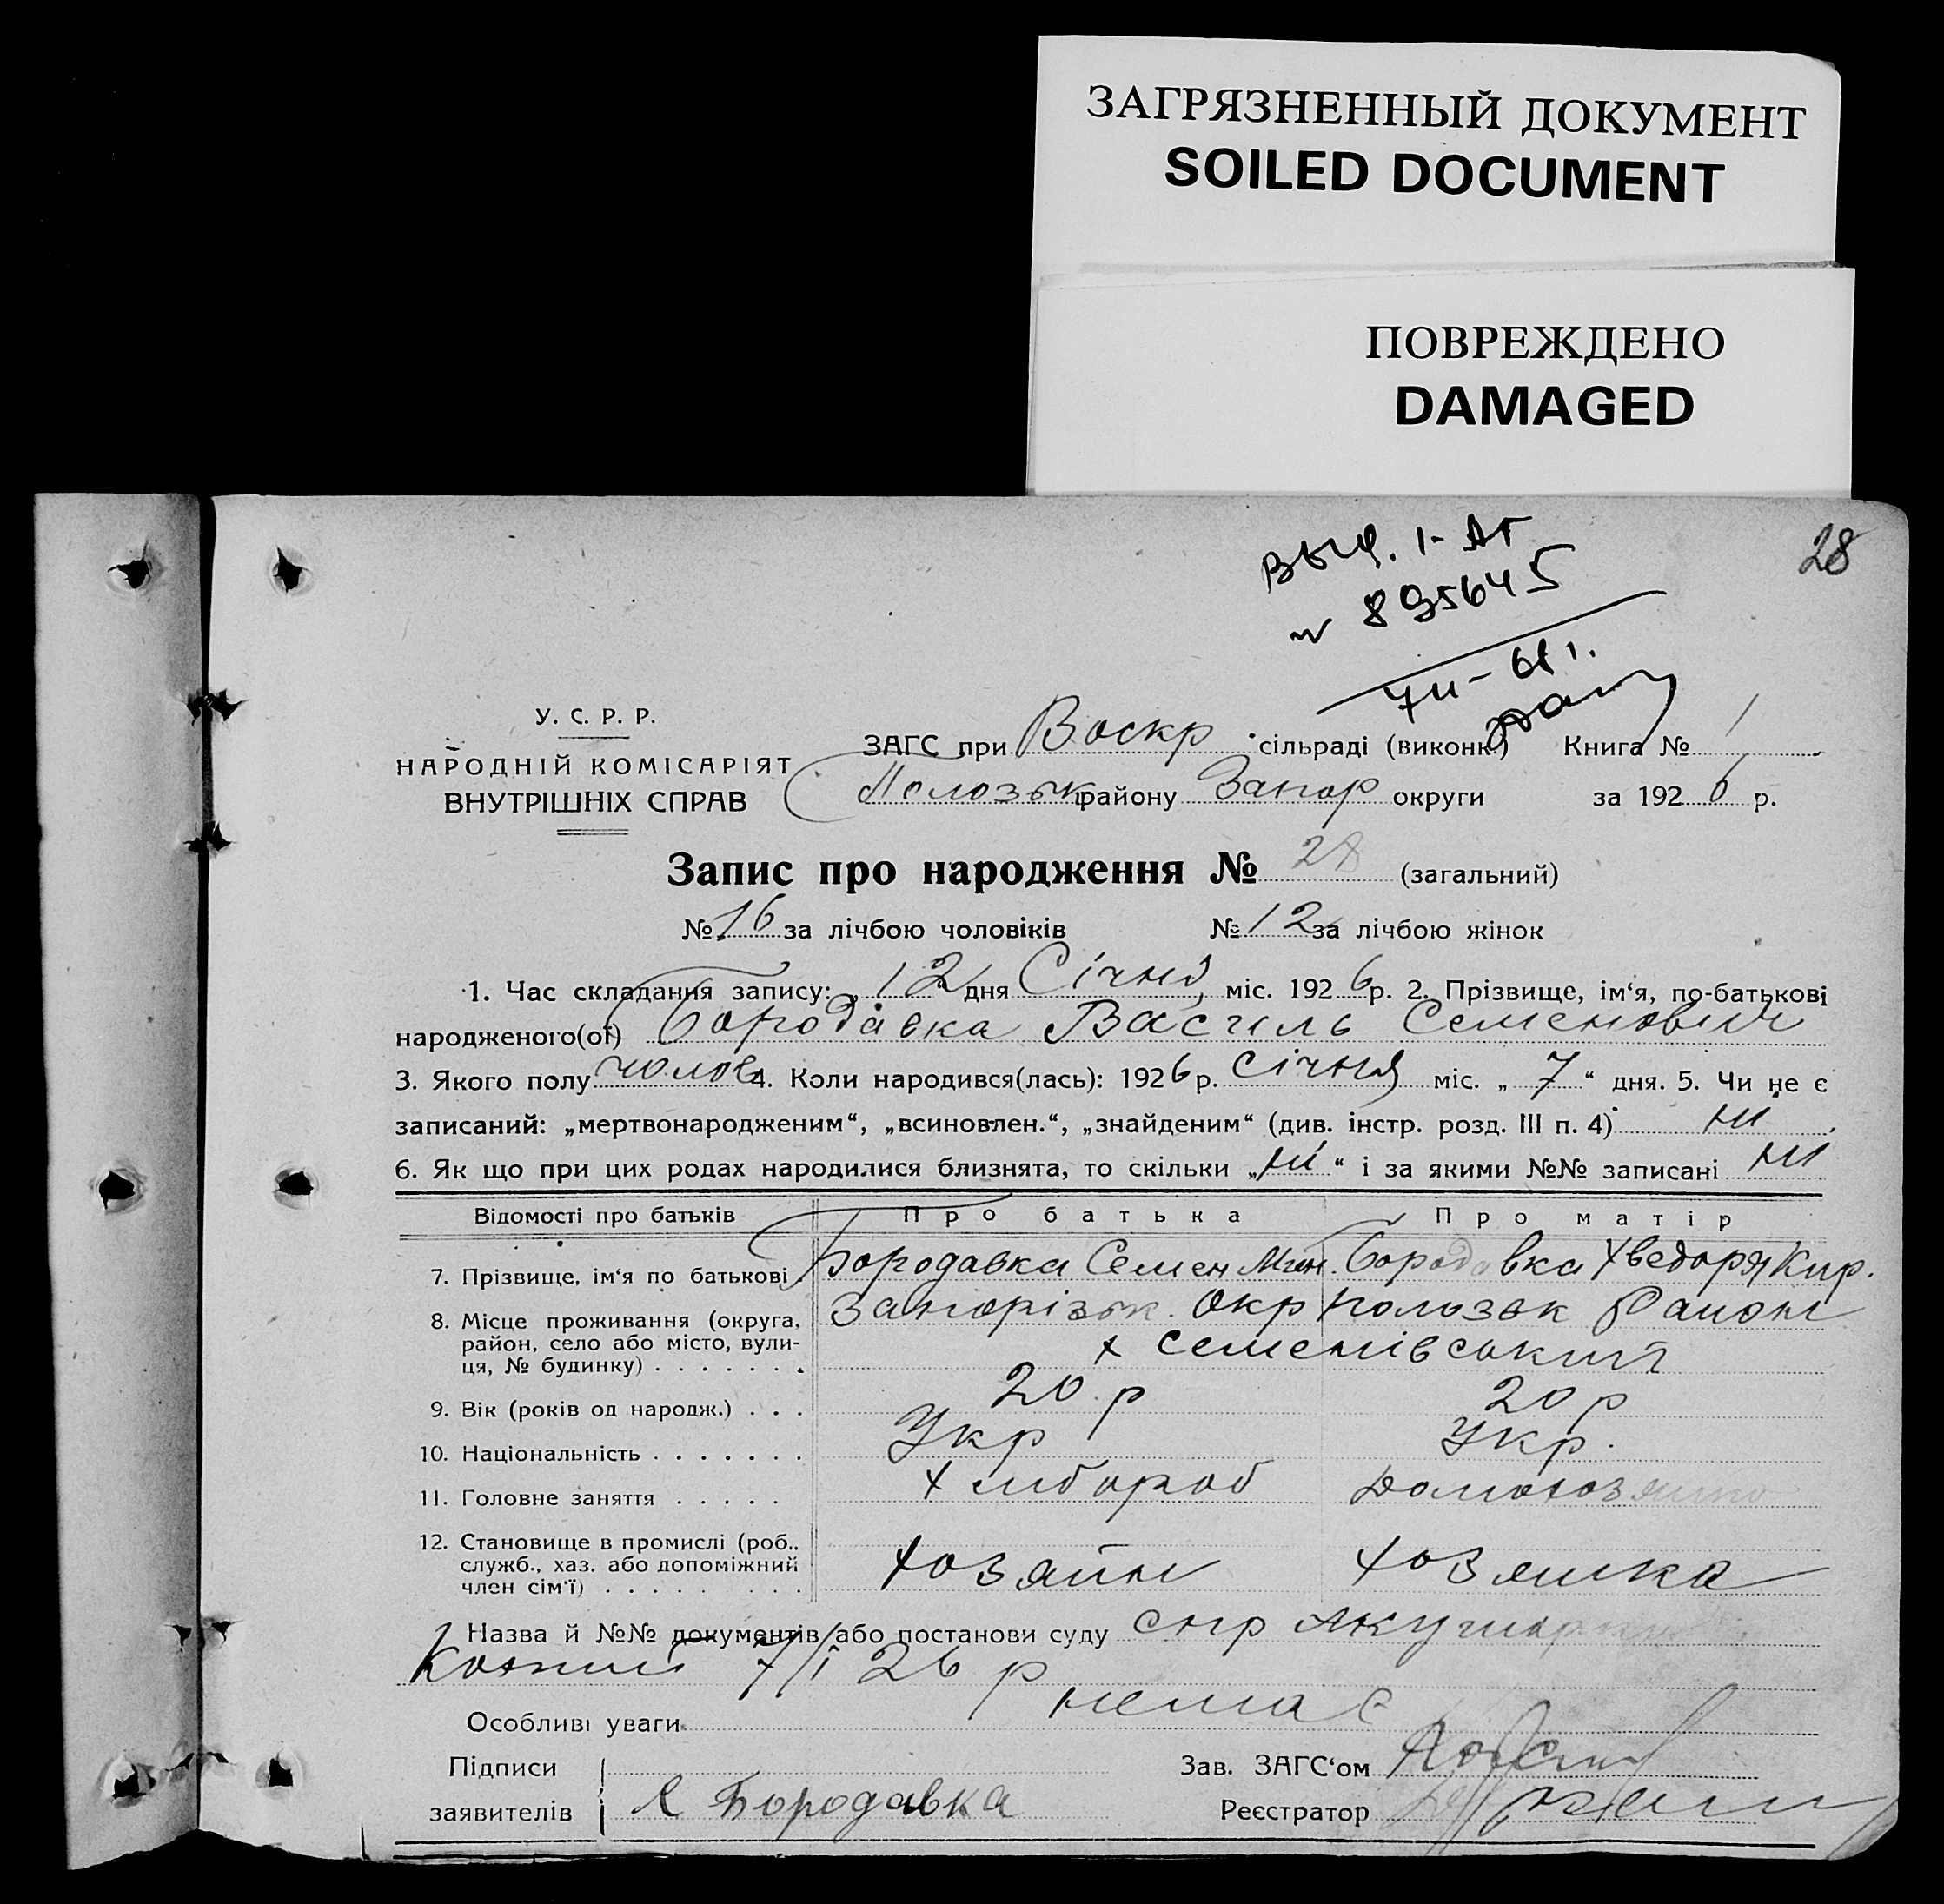 ЗАГРЯЗНЕННЫЙ ДОКУМЕНТ
SOILED DOCUMENT
ПОВРЕЖДЕНО
DAMAGED
28
№ 895645
У. С. Р. Р.
НАРОДНІЙ КОМІСАРІЯТ
ВНУТРІШНІХ СПРАВ
ЗАГС при Воскр сільраді (виконк.) Книга № 1
району Запор округи за 1926 р.
Запис про народження № 28 (загальний)
№ 16 за лічбою чоловіків № 12 за лічбою жінок
1. Час складання запису: „12" дня Січня міс. 1926 р. 2. Прізвище, ім'я, по-батькові
народженого(ої) Бородавка Василь Семенович
3. Якого полу чолов 4. Коли народився(лась): 1926 р. Січня міс. „7" дня. 5. Чи не є
записаний: „мертвонародженим", „всиновлен.", „знайденим" (див. інстр. розд. III п. 4) ні
6. Як що при цих родах народилися близнята, то скільки „ні" і за якими №№ записані ні
Відомості про батьків Про батька Про матір
7. Прізвище, ім'я по батькові Бородавка Семен Бородавка Хведоря Кир.
8. Місце проживання (округа, Запорізьк. Окр Район
район, село або місто, вули- х Семенівський
ця, № будинку)
9. Вік (років од народж.) 20 р 20 р
10. Національність Укр Укр.
11. Головне заняття Хлібороб
12. Становище в промислі (роб.. Хозяйн Хозяйка
служб., хаз. або допоміжний
член сім'ї)
Назва й №№ документів або постанови суду
7/I 26 р
Особливі уваги немає
Підписи Зав. ЗАГС'ом
заявителів Бородавка Реєстратор